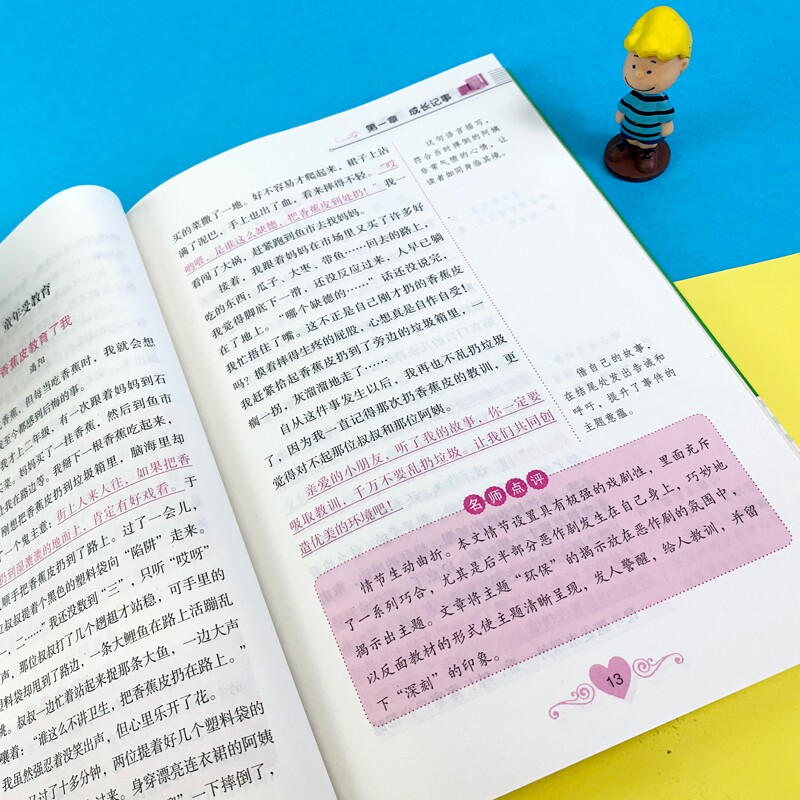 童年受教育
香蕉皮教育了我
香蕉，但每当吃香蕉时，我就会想
至今都感到后悔的事。
我才上二年级，有一次跟着妈妈到石
买菜。妈妈买了一挂香蕉，然后到鱼市
让我在路边等。我掰下一根香蕉吃起来，
刚想把香蕉皮扔到垃圾箱里，脑海里却
了一个鬼主意：街上人来人往，如果把香
扔到湿漉漉的地面上，肯定有好戏看。于
顺手把香蕉皮扔到了路上。过了一会儿，
位叔叔提着个黑色的塑料袋向“陷阱”走来。
一，二……”我还没数到“三”，只听“哎呀”
声，那位叔叔打了几个趔趄才站稳，可手里的
塑料袋却甩到了路边，一条大鲤鱼在路上活蹦乱
跳。叔叔一边忙着站起来捉那条大鱼，一边大声
嚷着：“谁这么不讲卫生，把香蕉皮扔在路上。”
我虽然强忍着没笑出声，但心里乐开了花。
又过了十多分钟，两位提着好几个塑料袋的
过来。身穿漂亮连衣裙的阿姨
”一下摔倒了，
第一章 成长记事
买的菜撒了一地。好不容易才爬起来，裙子上沾
满了泥巴，手上也出了血，看来摔得不轻。“哎
哟喂，是谁这么缺德，把香蕉皮到处扔！”我一
看闯了大祸，赶紧跑到鱼市去找妈妈。
接着，我跟着妈妈在市场里又买了许多好
吃的东西：瓜子、大枣、带鱼……回去的路上，
我觉得脚底下一滑，还没反应过来，人早已躺
在了地上。“哪个缺德的……”话还没说完，
我忙捂住了嘴。这不正是自己刚才扔的香蕉皮
吗？摸着摔得生疼的屁股，心想真是自作自受！
我赶紧拾起香蕉皮扔到了旁边的垃圾箱里，一
瘸一拐，灰溜溜地走了……
自从这件事发生以后，我再也不乱扔垃圾
了，因为我一直记得那次扔香蕉皮的教训，更
觉得对不起那位叔叔和那位阿姨。
亲爱的小朋友，听了我的故事，你一定要
吸取教训，千万不要乱扔垃圾。让我们共同创
造优美的环境吧！
这句语言描写，
符合当时摔倒的阿姨
非常气愤的心情，让
读者如同身临其境。
借自己的故事，
在结尾处发出告诫和
呼吁，提升了事件的
主题意蕴。
名师点评
情节生动曲折。本文情节设置具有极强的戏剧性，里面充斥
了一系列巧合，尤其是后半部分恶作剧发生在自己身上，巧妙地
揭示出主题。文章将主题“环保”的揭示放在恶作剧的氛围中，
以反面教材的形式使主题清晰呈现，发人警醒，给人教训，并留
下“深刻”的印象。
13